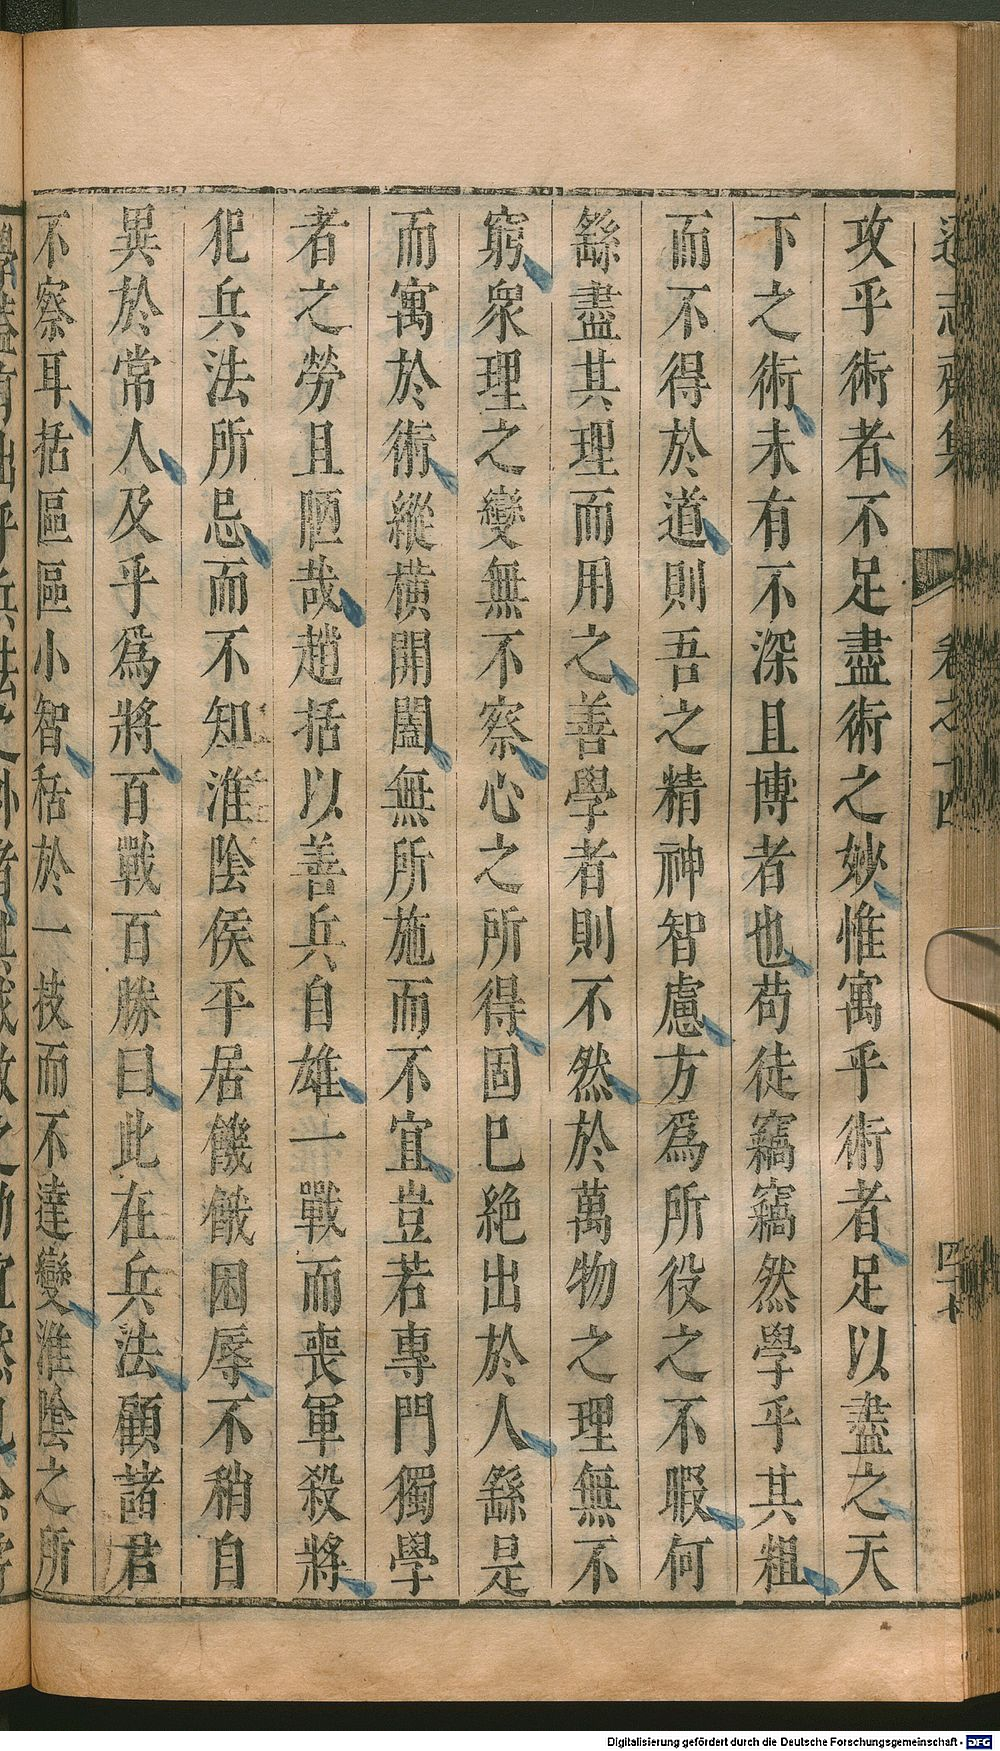 遜志齋集 卷之十四
攻乎術者不足盡術之妙惟寓乎術者足以盡之天
下之術未有不深且博者也苟徒竊竊然學乎其粗
而不得於道則吾之精神智慮方爲所役之不暇何
繇盡其理而用之善學者則不然於萬物之理無不
窮衆理之變無不察心之所得固已絶出於人繇是
而寓於術縱橫開闔無所施而不宜豈若專門獨學
者之勞且陋哉趙括以善兵自雄一戰而喪軍殺將
犯兵法所忌而不知淮陰侯平居饑餓困辱不稍自
異於常人及乎爲將百戰百勝曰此在兵法顧諸君
不察耳括區區小智秳於一技而不達變淮陰之所
Digitalisierung gefördert durch die Deutsche Forschungsgemeinschaft - DFG